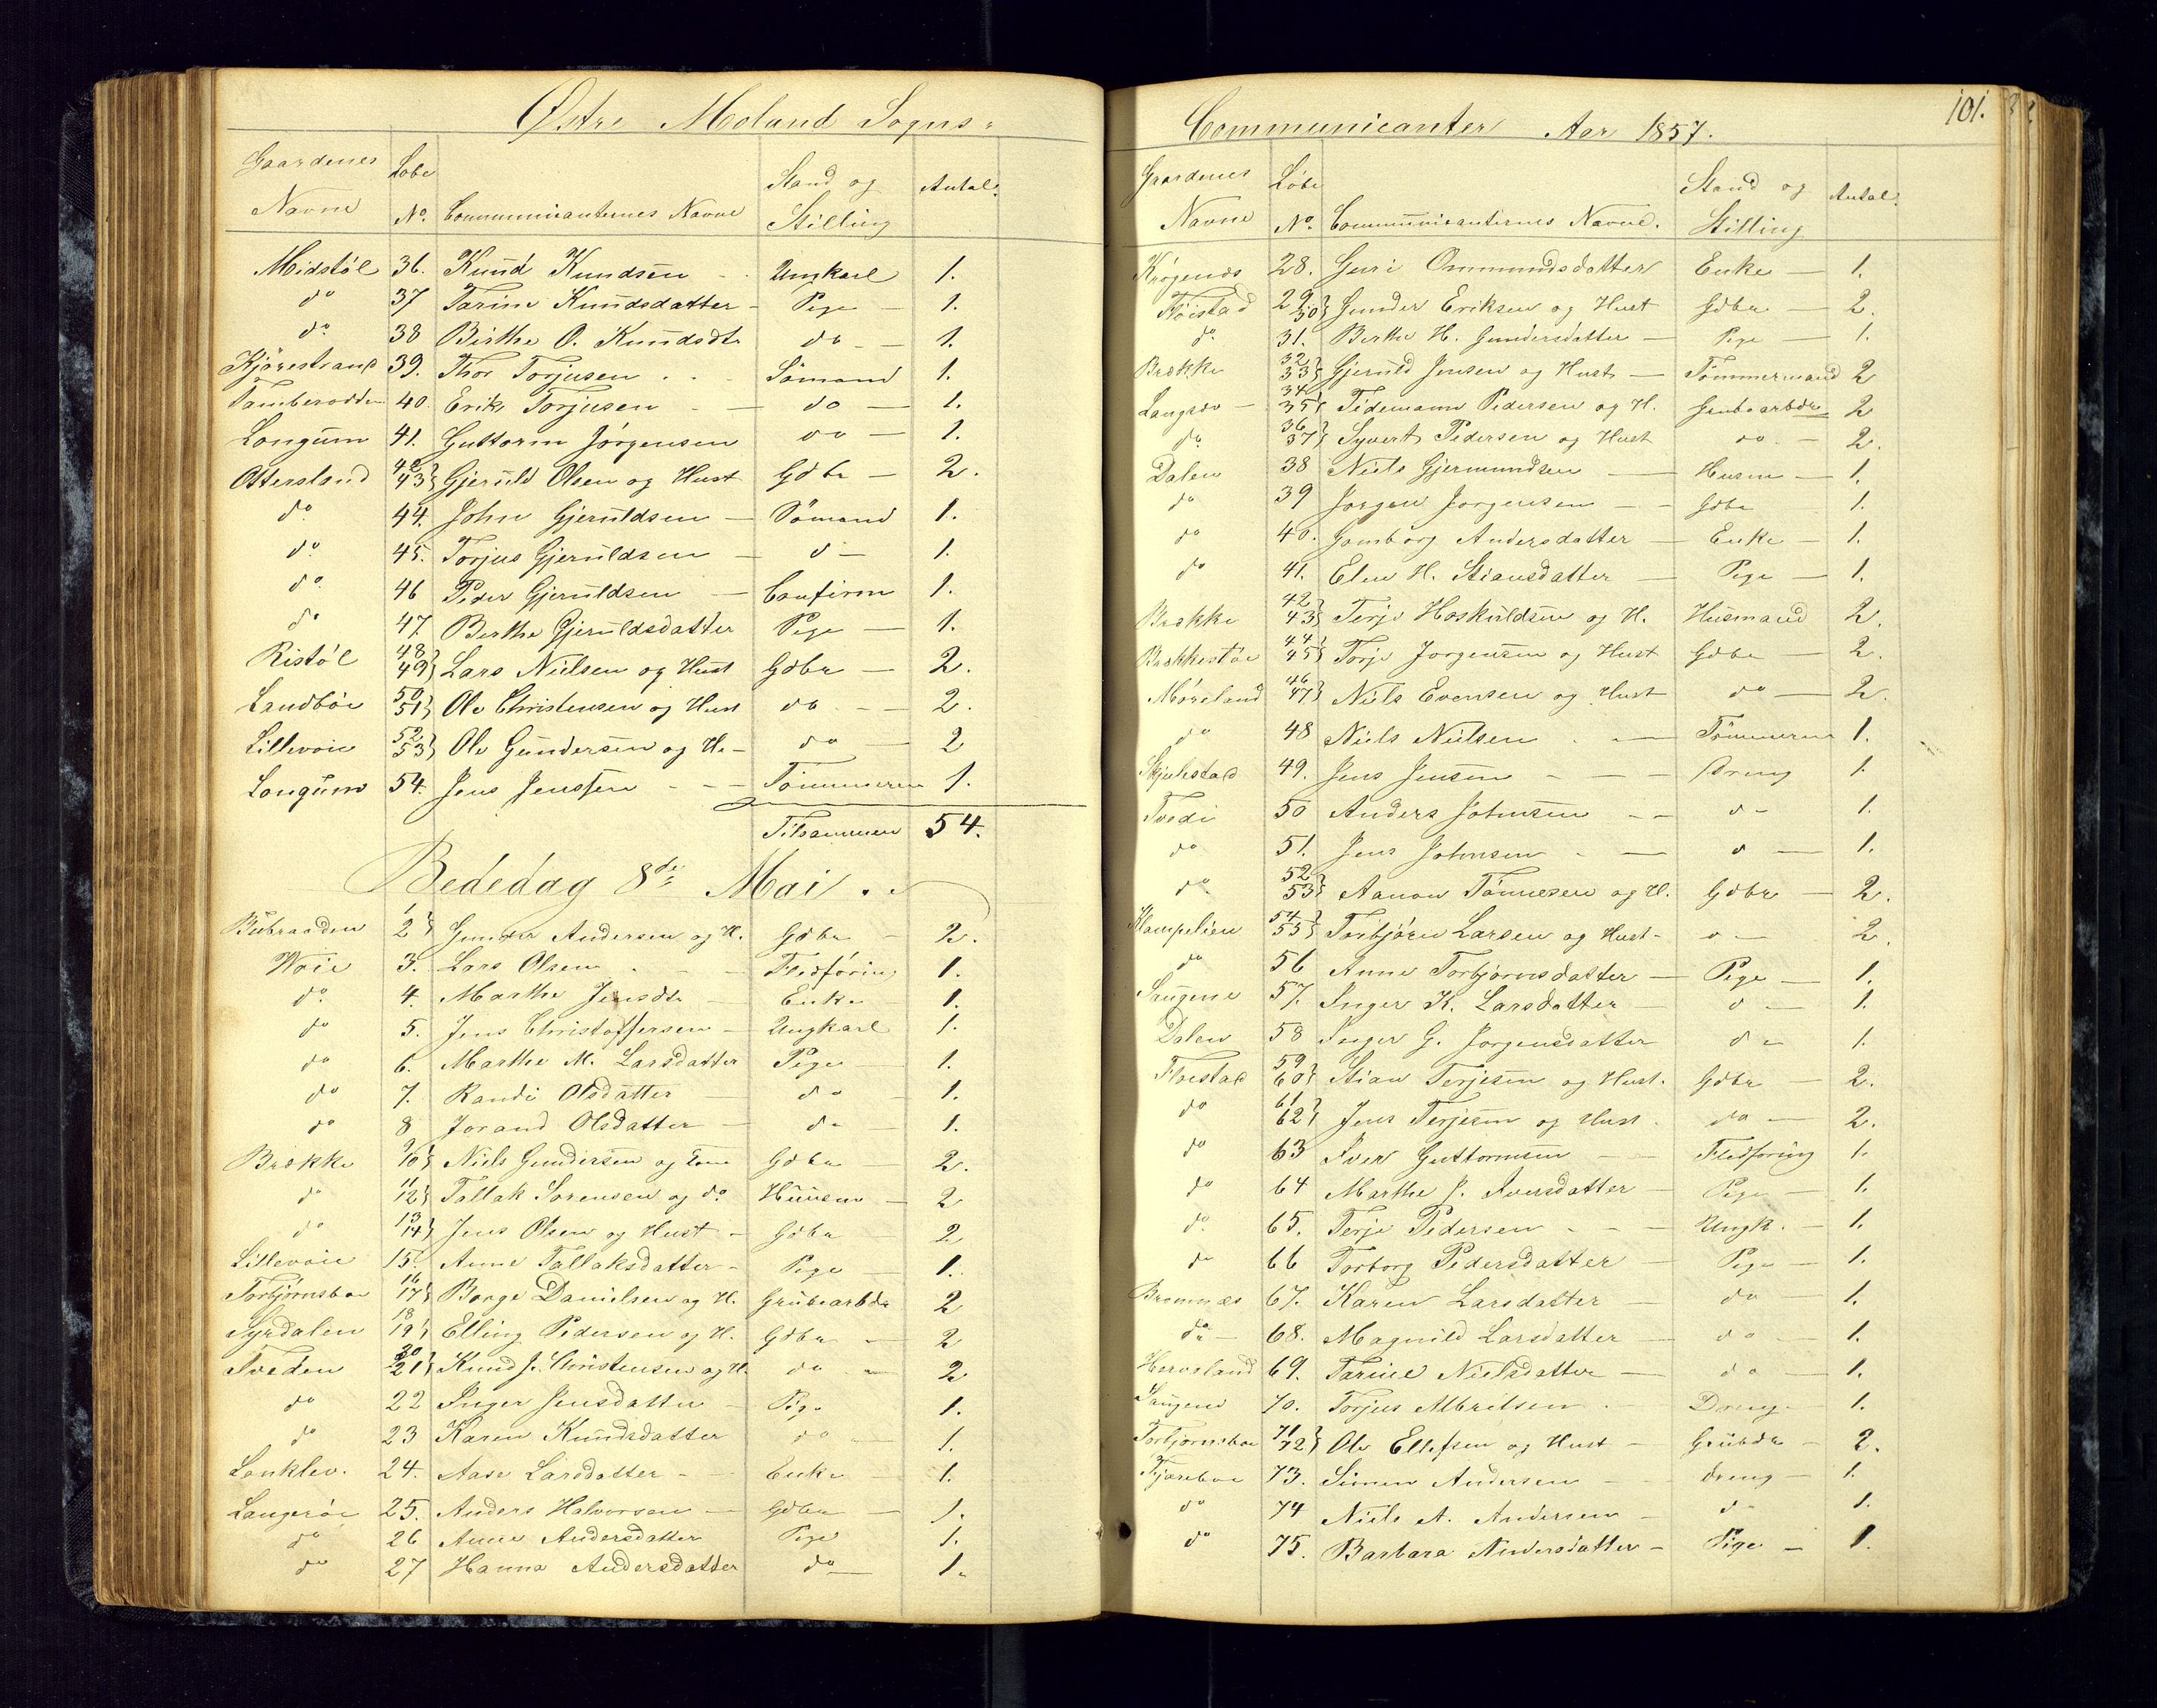 Østre Moland Sogns
Gaardenes Navne Løbe No. Communicanternes Navne Stand og Stilling Antal.
Midstøl 36. Knud Knudsen Ungkarl 1.
do 37 Tarine Knudsdatter Pige 1.
do 38 Birthe O. Knudsdtr do 1.
Kjørestrand 39. Thor Torjusen Sømand 1.
40. Erik Torjusen do 1.
Longum 41. Guttorm Jørgensen do 1.
Ottersland 42 43} Gjeruld Olsen og Hust Gdbr 2.
do 44. John Gjeruldsen Sømand 1.
do 45. Torjus Gjeruldsen d 1.
do 46 Peder Gjeruldsen Confirm 1.
do 47. Berthe Gjeruldsdatter Pige 1.
Ristøl 48 49} Lars Nielsen og Hust Gdbr 2.
Sandbøe 50 51} Ole Christensen og Hust do 2.
Lillevoie 52 53} Ole Gundersen og H. do 2
Longum 54. Jens Jenssen Tømmerm 1.
Tilsammen 54.
Bededag 8de Mai
1 2} Gunder Andersen og H. Gdbr 2.
Woie 3. Lars Olsen Flodføring 1.
do 4. Marthe Jensdtr Enke 1.
do 5. Jens Christoffersen Ungkarl 1.
do 6. Marthe M. Larsdatter Pige 1.
do 7. Randi Olsdatter do 1.
do 8 Jorand Olsdatter do 1.
Brække 9 10} Niels Gundersen og Kone Gdbr 2.
do 11 12} Tallak Sørensen og do Huusm 2
do 13 14} Jens Olsen og Hust Gdbr 2
Lillevoie 15. Anne Tallaksdatter Pige 1.
Torbjørnsboe 16 17} Børge Danielsen og H. Grubearbdr 2
Syrdalen 18 19} Elling Pedersen og H. Gdbr 2
Tveden 20 21} Knud J. Christensen og H. do 2
do 22 Inger Jensdatter Pige 1.
do 23 Karen Knudsdatter do 1.
Lanklev. 24. Aase Larsdatter Enke 1.
Langerøe 25. Anders Halvorsen Gdbr 1.
do 26 Anne Andersdatter Pige 1.
do 27 Hanna Andersdatter do 1.
101.
Communicanter Aar 1857.
Gaardenes Navne Løbe No. Communicanternes Navne. Stand og Stilling Antal.
28. Guri Ommundsdatter Enke 1.
Fløistad 29 30} Gunder Eriksen og Hust Gdbr 2.
do 31. Berthe H. Gundersdatter Pige 1.
Brække 32 33} Gjeruld Jensen og Hust Tømmermand 2
Langsæv 34 35} Tidemann Pedersen og H. Grubearbdr 2
do 36 37} Syvert Pedersen og Hust do 2.
Dalen 38 Niels Gjermundsen Husm 1.
do 39 Jørgen Jørgensen Gdbr 1.
do 40. Gomborg Andersdatter Enke 1.
do 41. Elen H. Stiansdatter Pige 1.
Brække 42 43} Terje Hoskuldsen og H. Husmand 2.
Brækkestøe 44 45} Torje Jørgensen og Hust Gdbr 2.
Møreland 46 47} Niels Evensen og Hust do 2.
do 48 Niels Nielsen Tømmerm 1.
Skjulestad 49. Jens Jensen Dreng 1.
Tvedi 50 Anders Johnsen d 1.
do 51. Jens Johnsen d 1.
do 52 53} Aanon Tønnesen og H. Gdbr 2.
Klampelien 54 55} Torbjørn Larsen og Hust d 2.
do 56 Anne Torbjørnsdatter Pige 1.
Saugene 57. Inger K. Larsdatter d 1.
Dalen 58 Inger G. Jørgensdatter d 1.
Fløistad 59 60} Stian Terjesen og Hust. Gdbr 2.
do 61 62} Jens Terjesen og Hust do 2.
do 63 Iver Guttormsen Flodføring 1.
do 64 Marthe J. Iversdatter Pige 1.
do 65. Terje Pedersen Ungk. 1.
do 66 Torborg Pedersdatter Pige 1.
Bromnes 67. Karen Larsdatter do 1.
do 68. Magnild Larsdatter do 1.
Herveland 69. Tarine Nielsdatter do 1.
Saugene 70. Torjus Albretsen Dreng 1.
Torbjørnsboe 71 72} Ole Ellefsen og Hust Grubdr 2.
73. Simen Andersen dreng 1.
do 74 Niels A. Andersen d 1.
do 75. Barbara Andersdatter Pige 1.